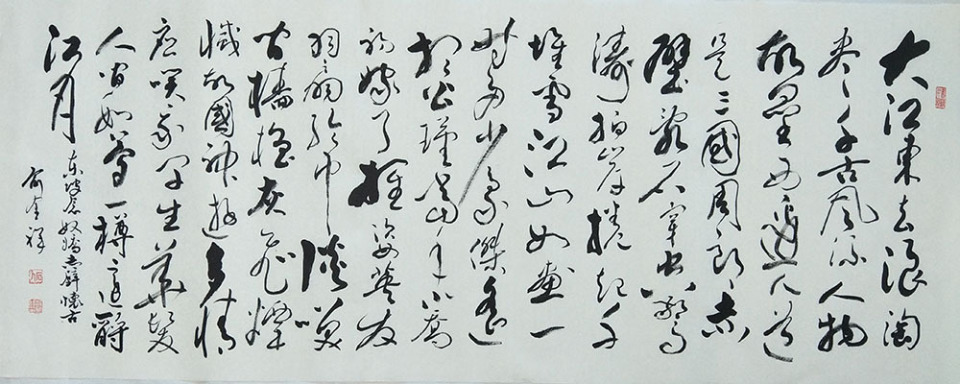 大江東去浪淘
尽千古風流人物
故壘西邊人道
是三國周郎赤
壁亂石穿空驚
濤拍岸捲起千
堆雪江山如畫一
時多少豪傑遙
想公瑾當年小喬
初嫁了雄姿英發
羽扇綸巾談笑
間檣櫓灰飛煙
滅故國神遊多情
應笑我早生華髮
人間如夢一樽還酹
江月
東坡念奴嬌赤壁懷古